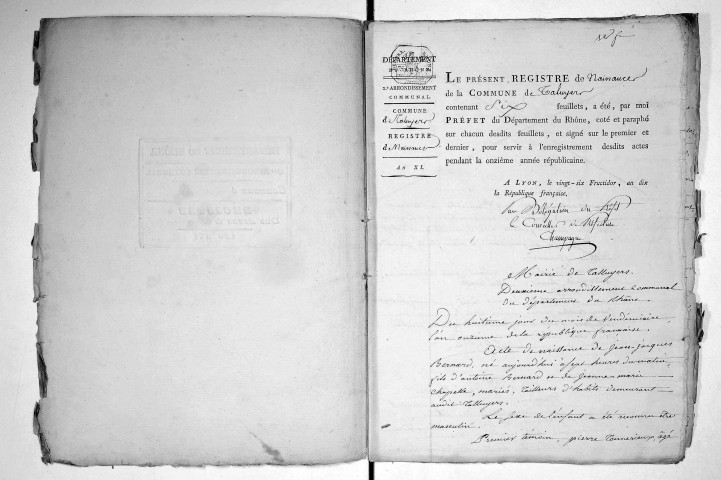 DÉPARTEMENT
DU RHÔNE.
2.e ARRONDISSEMENT
COMMUNAL
COMMUNE
de Taluyers
REGISTRE
de Naissances
AN XI.
LE PRÉSENT REGISTRE de Naissances
de la COMMUNE de Taluyers
contenant Six feuillets, a été, par moi
PRÉFET du Département du Rhône, coté et paraphé
sur chacun desdits feuillets, et signé sur le premier et
dernier, pour servir à l'enregistrement desdits actes
pendant la onzième année républicaine.
A LYON, le vingt-six Fructidor, an dix
de la République française.
Par Délégation du Préfet
le Conseiller de Préfecture
Mairie de Talluyers.
Deuxieme arrondissement Communal
du département du Rhône.
Du huitieme jour du mois de Vendemiaire
l'an onzieme de la république française.
Acte de naissance de Jean-Jacques
Bernard, né aujourdhui à sept heures du matin
fils d'antoine Bernard et de Jeanne-marie
chapelle, mariés, tailleurs d'habits demeurant
audit Talluyers.
Le sexe de l'enfant a été reconnu être
masculin.
Premier témoin, pierre Tonnerieux, âgé